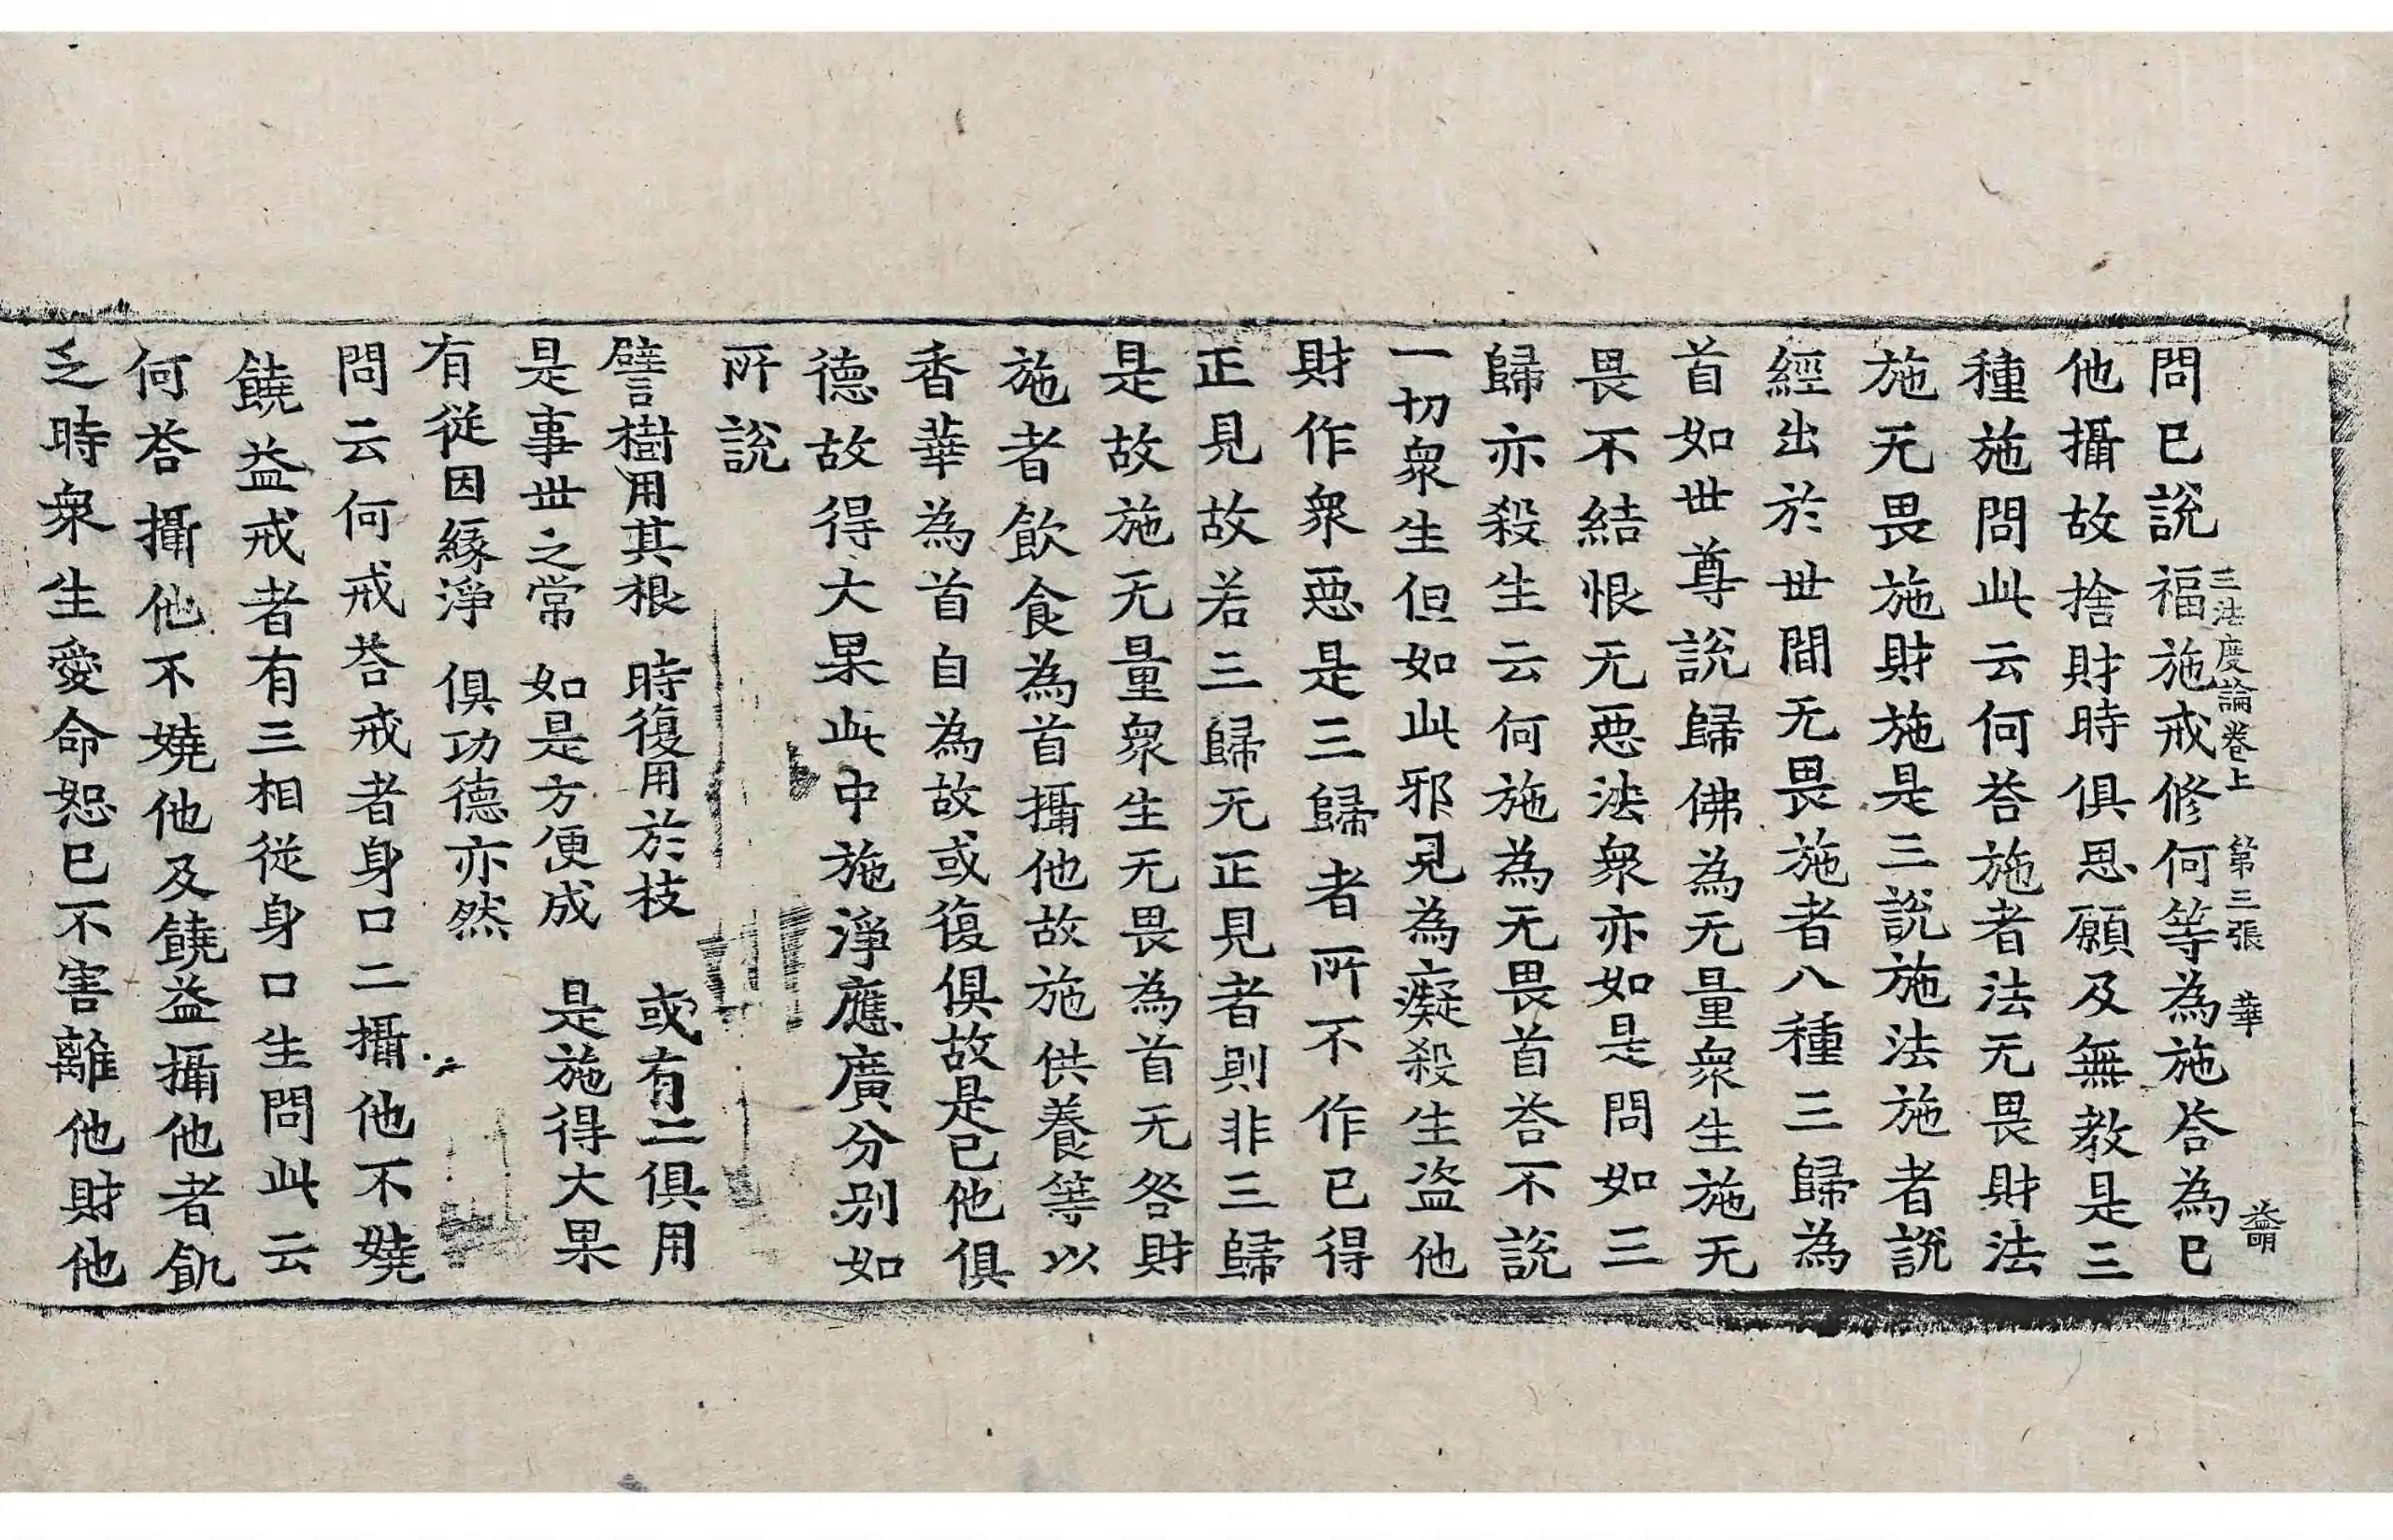 問已說福施戒修何等為施荅為已
三法度論卷上 第三張 華
他攝故捨財時俱思願及無教是三
種施問此云何荅施者法无畏財法
施无畏施財施是三說施法施者說
經出於世間无畏施者八種三歸為
首如世尊說歸佛為无量衆生施无
畏不結恨无惡法衆亦如是問如三
歸亦殺生云何施為无畏首荅不說
一切衆生但如此邪見為癡殺生盜他
財作衆惡是三歸者所不作已得
正見故若三歸无正見者則非三歸
是故施无量衆生无畏為首无咎財
施者飲食為首攝他故施供養等以
香華為首自為故或復俱故是已他俱
德故得大果此中施淨應廣分別如
所說
譬樹用其根 時復用於枝 或有二俱用
是事世之常 如是方便成 是施得大果
有從因緣淨 俱功德亦然
問云何戒荅戒者身口二攝他不嬈
饒益戒者有三相從身口生問此云
何荅攝他不嬈他及饒益攝他者飢
乏時衆生愛命恕已不害離他財他